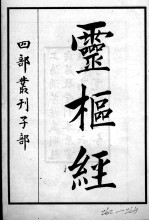 靈樞經
四部叢刊子部